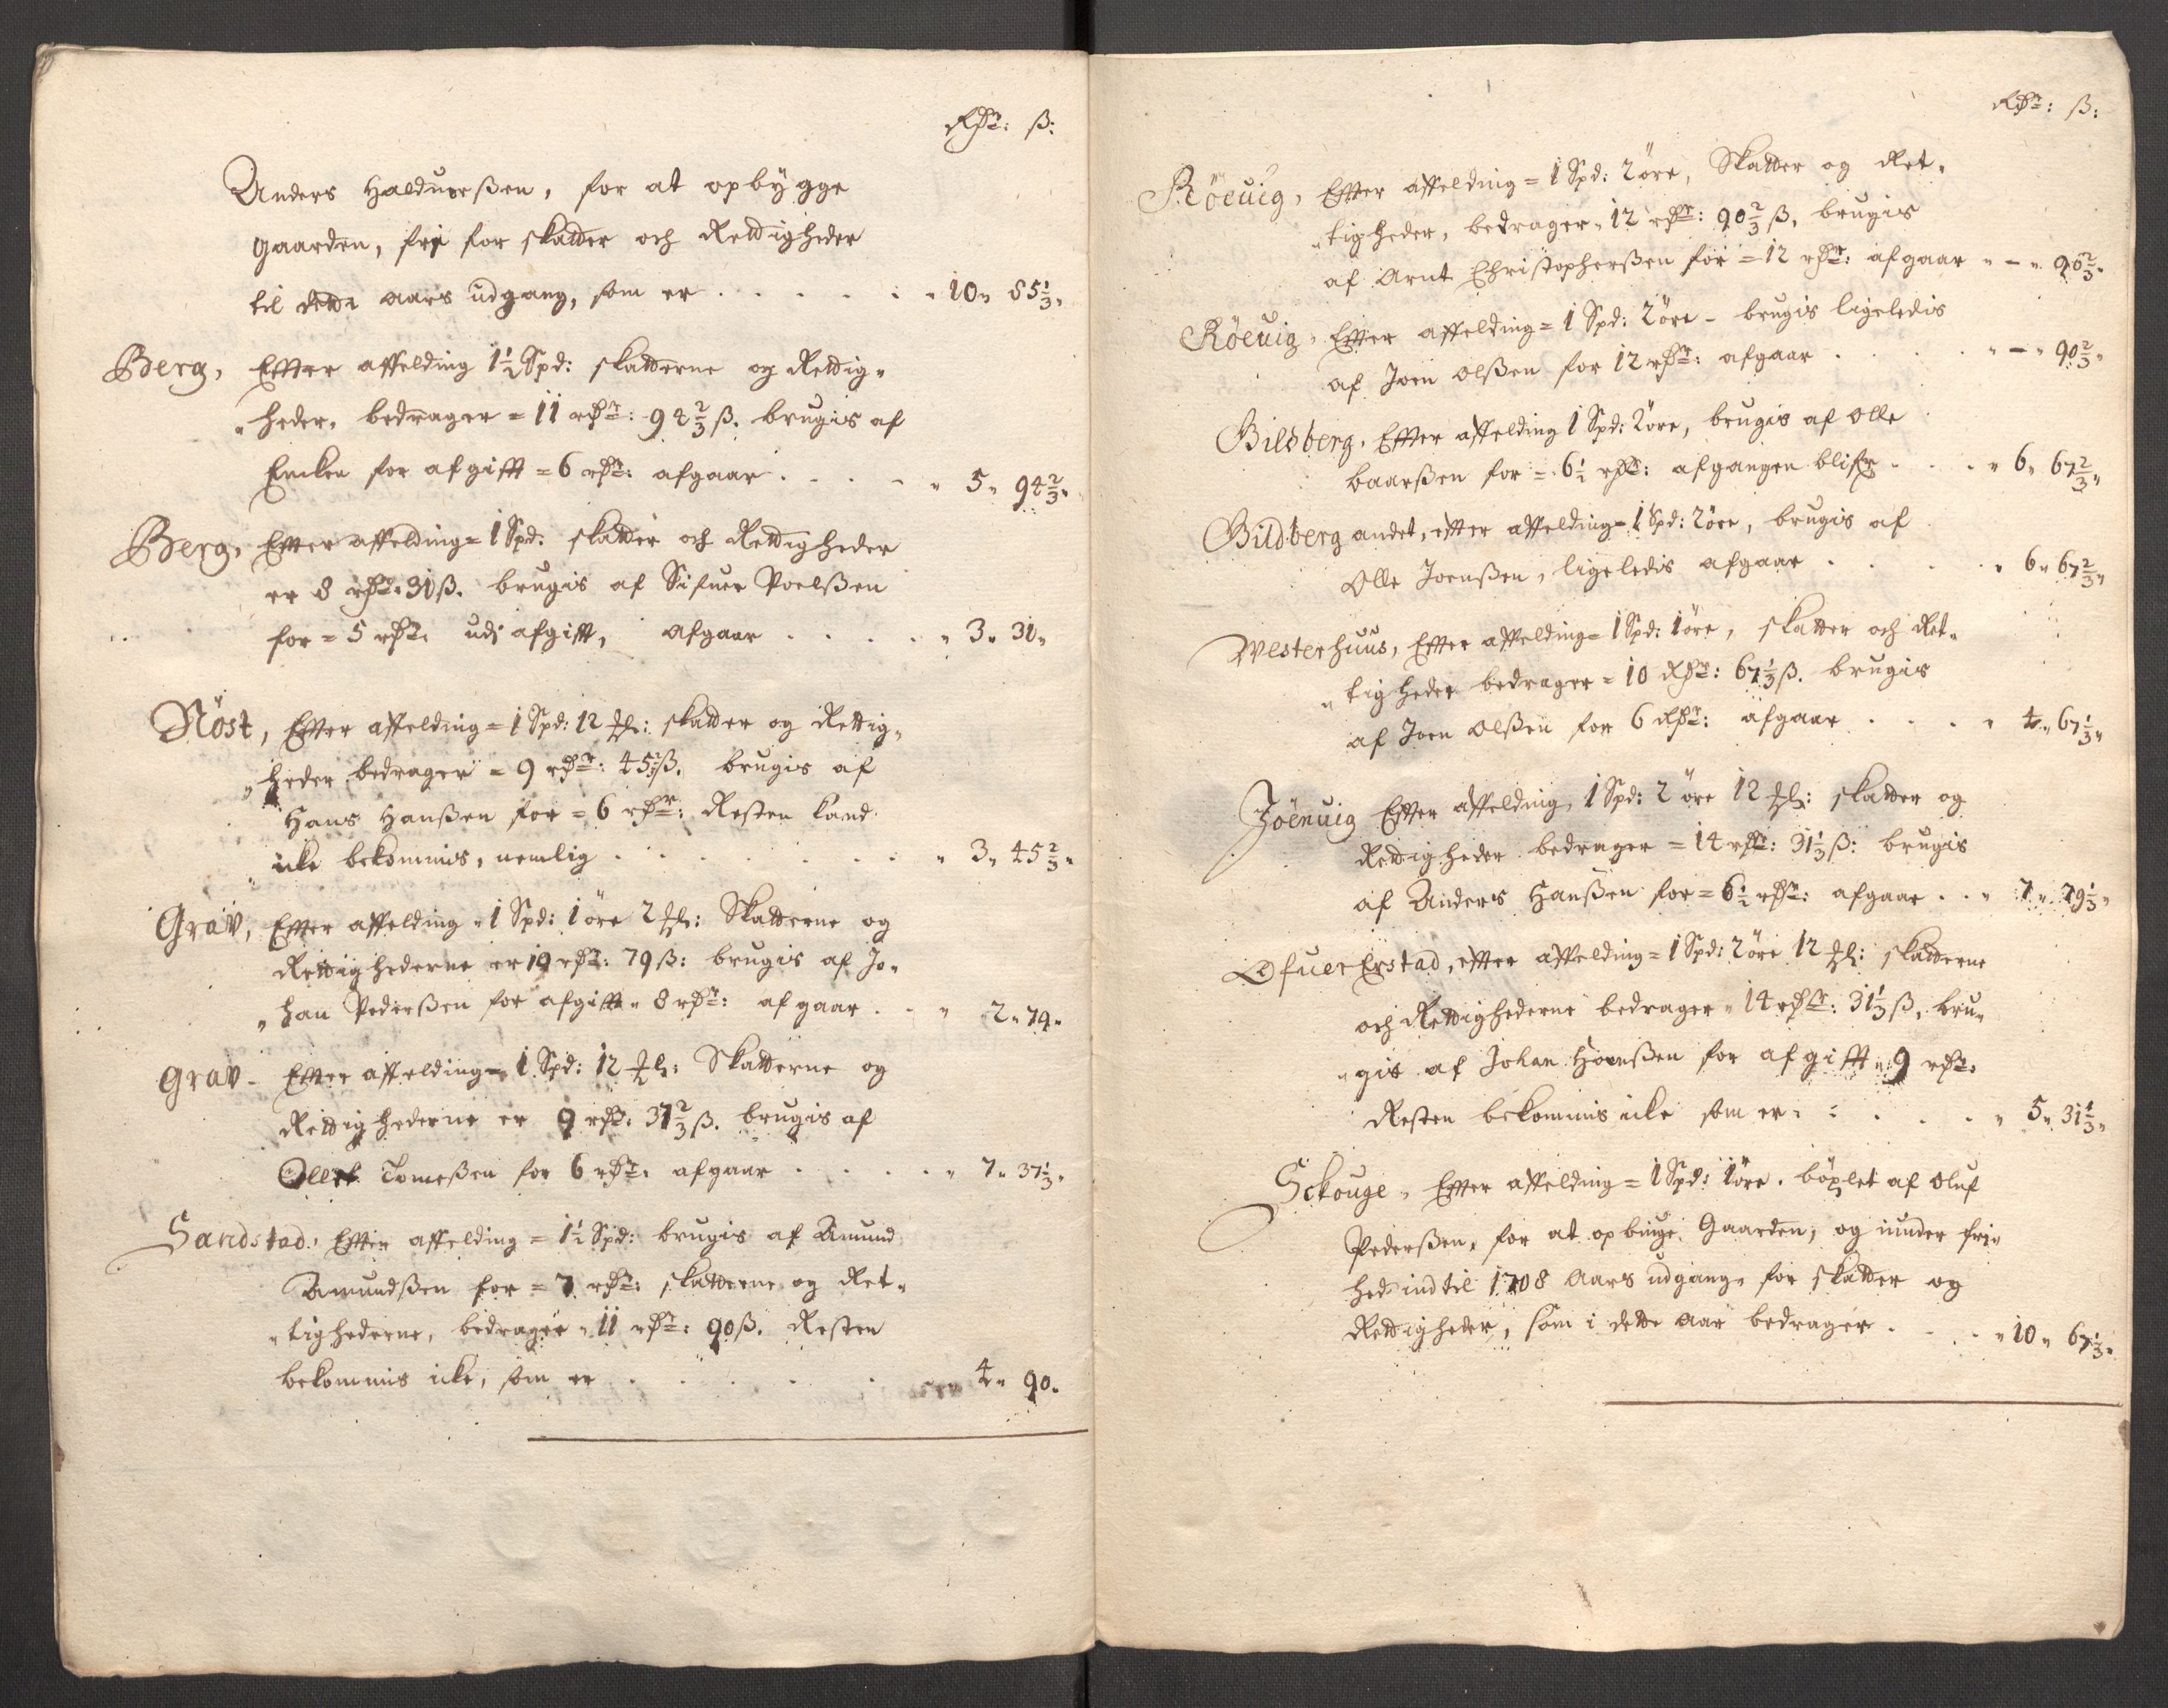 Rdr: ß:
Anders Halduorßen, for at opbÿgge
gaarden, frj for skatter och Rettigheder
til dette aars udgang, som er . . . . . . „ 10„ 85 1/3„
Berg, Effter affelding 1 1/2 Spd: skatterne og Rettig„
„heder, bedrager = 11 rdr: 94 2/3 ß. brugis af
Encken for afgifft = 6 rdr: afgaar . . . . „ 5„ 94 2/3„
Berg, Effter affelding = 1 Spd: skatter och Rettigheder
er 8 rdr: 31 ß. brugis af Sifuer Poelßen
for = 5 rdr: udj afgift, afgaar . . . . . „ 3„ 31„
Nöst, Effter affelding = 1 Spd: 12 : skatter og Rettig„
„heder bedrager = 9 rdr: 45 2/3 ß. brugis af
Hans Hanßen for = 6 rdr: Resten kand
icke bekommis, nemlig . . . . . . . „ 3„ 45 2/3„
Grav, Effter affelding „ 1 Spd: 1 öre 2 : Skatterne og
Rettighederne er 10 rdr: 79 ß: brugis af Jo„
„han Pederßen for afgifft „ 8 rdr: afgaar . . „ 2„ 79„
Grav - Effter affelding = 1 Spd: 12 : Skatterne og
Rettighederne er 9 rdr: 37 2/3 ß. brugis af
Olle Tomeßen for 6 rdr: afgaar . . . . . „ 7„ 37 1/3„
Sandstad. Effter affelding = 1 1/2 Spd: brugis af Amund
Amundßen for = 7 rdr: skatterne og Ret„
„tighederne, bedrager „ 11 rdr: 90 ß. Resten
bekommis icke, som er . . . . . . 4„ 90„
Rdr: ß:
Röevig, Effter affelding = 1 Spd: 2 öre, Skatter og Ret„
„tigheder, bedrager „ 12 rdr: 90 2/3 ß, brugis
af Arnt Christopherßen for = 12 rdr: afgaar „ - „ 90 2/3„
Röevig, Effter affelding = 1 Spd: 2 öre - brugis ligeledis
af Joen Olßen for 12 rdr: afgaar . . . . . „ - „ 90 2/3„
Bildberg, Effter affelding 1 Spd: 2 öre, brugis af Olle
baarßen for = 6 1/2 rdr: afgangen blifr . . . „ 6„ 67 2/3„
Bildberg andet, effter affelding = 1 Spd: 2 öre, brugis af
Olle Joenßen, ligeledis afgaar . . . . . „ 6„ 67 2/3„
Westerhuus, Effter affelding = 1 Spd: 1 öre, skatter och Ret„
„tigheder bedrager = 10 Rdr: 67 1/3 ß. brugis
af Joen Olßen for 6 Rdr: afgaar . . . . „ 4„ 67 1/3„
Jöenvig Effter affelding, 1 Spd: 2 öre 12 : skatter og
Rettigheder bedrager = 14 rdr: 31 1/3 ß: brugis
af Anders Hanßen for = 6 1/2 rdr: afgaar . . „ 7„ 79 1/3„
Ofuer Erstad, effter affelding = 1 Spd: 2 öre 12 : skatterne
och Rettighederne bedrager „ 14 rdr: 31 1/3 ß, bru„
„gis af Johan Hoenßen for afgifft „ 9 rdr:
Resten bekommis icke som er . . . . . „ 5„ 31 1/3„
Sckouge, Effter affelding = 1 Spd: 1 öre. böxlet af Oluf
Pederßen, for at opbinge Gaarden, og under fri„
hed indtil 1708 Aars udgang, for skatter og
Rettigheder, som i dette aar bedrager . . . . „ 10„ 67 1/3„